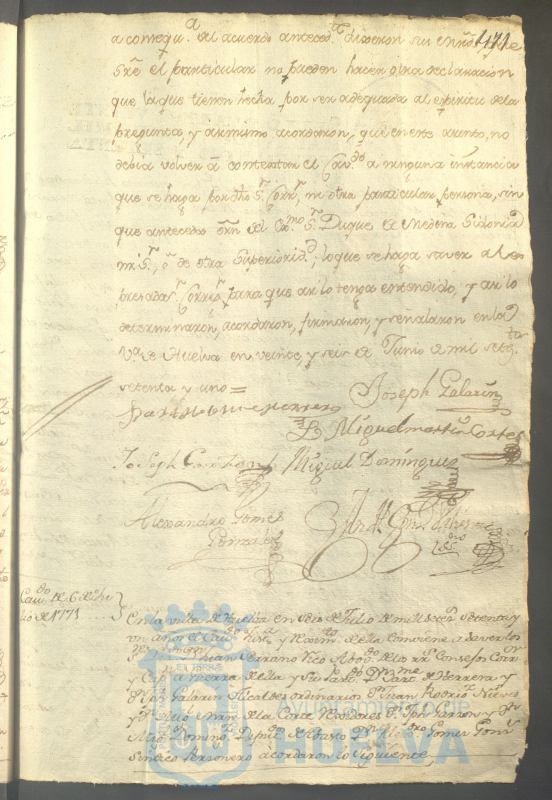 171
a consequ.ª del acuerdo anteced.te dixeron sus mrds. que
sre el particular no pueden hacer otra declaracion
que la que tienen hecha por ser adequada al espiritu de la
pregunta, y asimismo acordaron, que en este asunto, no
debia volver á contextar el Cav.do a ninguna instancia
que se haga por dho S.r Corr.r, ni otra particular persona, sin
que anteceda orn del Ex.mo S.r Duque de Medina Sidonia
mi S.r, ó de otra Superiorid.d; lo que se haga saver al es
presado S.r Corr.r para que asi lo tenga entendido, y asi lo
determinaron, acordaron, firmaron, y señalaron en la
V.ª de Huelva en veinte, y seis de Junio de mil setez.tos
setenta y uno =
Joseph Galarin
Herrero
Miguel martin Cortes
Joseph Miguel Dominguez
Alexandro Gomez
Gonzalez
Cav.do de 6 de Ju
lio de 1771
En la villa de Huelva en seis de Julio de mil setec.s setenta y
un años el Cav.do Just.ª y Regim.to de ella conviene a saver los
Juan Serrano Vico Abog.do de los R.s Consejos Corr.or
y Cap.n a Guerra de ella y su Part. D. Bart.me de Herrera y
D.n Jph Galarin Alcaldes ordinarios D.n Juan
y D.n Mig.l Mrn. de la Corte Rexidores D.n Jph Barron y D.n
Mig.l Doming.z Diput.s de Abasto D.n Alex.dro Gomez Gonz.z
Sindico Personero acordaron lo siguiente
Ayuntamiento de
HUELVA